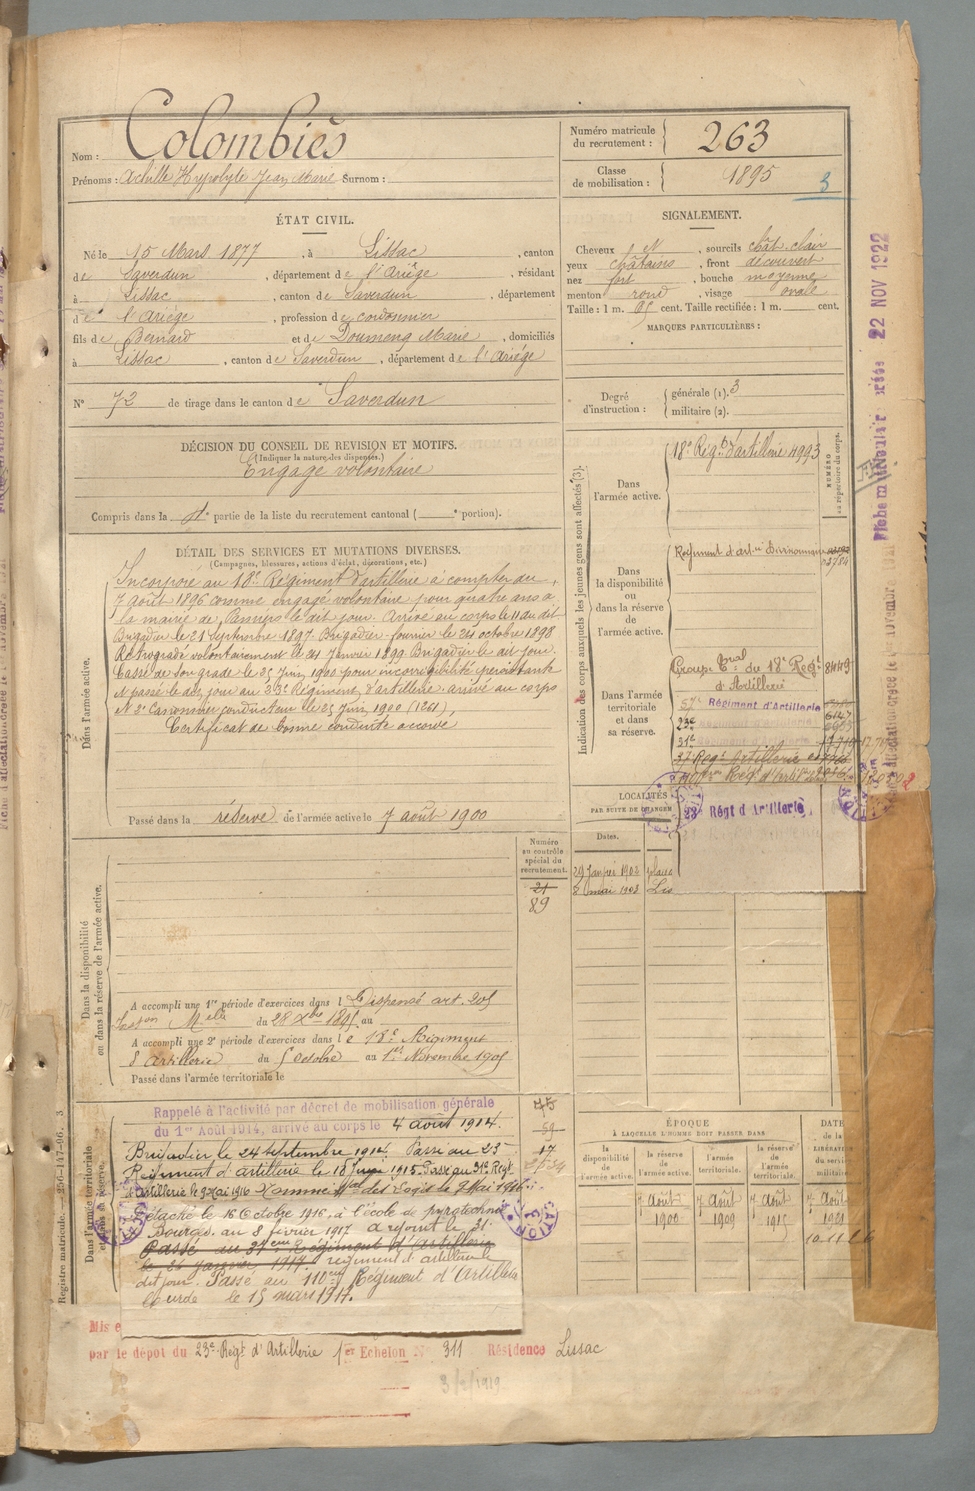 Nom : Colombiès
Prénoms : Achille Hyppolyte Jean Marie Surnom :
Numéro matricule du recrutement : 263
Classe de mobilisation : 1895
3
ÉTAT CIVIL.
Né le 15 Mars 1877, à Lissac, canton
de Saverdun, département de l'Ariège, résidant
à Lissac, canton de Saverdun, département
de l'Ariège, profession de cordonnier
fils de Bernard et de Doumenq Marie, domiciliés
à Lissac, canton de Saverdun, département de l'Ariége
N° 72 de tirage dans le canton de Saverdun
SIGNALEMENT.
Cheveux et, sourcils chât. clair
yeux châtains, front découvert
nez fort, bouche moyenne
menton rond, visage ovale
Taille : 1 m. cent. Taille rectifiée : 1 m. cent.
MARQUES PARTICULIÈRES :
Degré d'instruction : générale (1). 3
militaire (2).
DÉCISION DU CONSEIL DE REVISION ET MOTIFS.
(Indiquer la nature des dispenses.)
Engagé volontaire
Compris dans la partie de la liste du recrutement cantonal ( portion).
DÉTAIL DES SERVICES ET MUTATIONS DIVERSES.
(Campagnes, blessures, actions d'éclat, décorations, etc.)
Dans l'armée active.
Incorporé au 18e Régiment d'artillerie à compter du
7 août 1896 comme engagé volontaire pour quatre ans à
la mairie de Pamiers le dit jour. Arrivé au corps le 11 du dit
Brigadier le 21 Septembre 1897. Brigadier-fourrier le 24 octobre 1898
Rétrogradé volontairement le 24 Janvier 1899 Brigadier le dit jour.
Cassé de son grade le 25 Juin 1900 pour incorrigibilité persistante
et passé le dit jour au 23e Régiment d'artillerie arrivé au corps
et 2e Canonnier conducteur le 25 Juin 1900 (1261)
Certificat de bonne conduite accordé
Passé dans la réserve de l'armée active le 7 août 1900
Indication des corps auxquels les jeunes gens sont affectés (3).
NUMÉRO au répertoire du corps.
Dans l'armée active.
18e Régt d'artillerie 4993
Dans la disponibilité ou dans la réserve de l'armée active.
Régiment d'artie
Dans l'armée territoriale et dans sa réserve.
Groupe Tral du 18e Régt 8449
d'Artillerie
57e Régiment d'Artillerie
23e
31e
37 Régt Artillerie
23e Régt d'Artillerie
LOCALITÉS
PAR SUITE DE CHANGEM
Dates.
29 Janvier 1902
8 mai 1903 Lis
Numéro au contrôle spécial du recrutement.
21
89
Dans la disponibilité ou dans la réserve de l'armée active.
A accompli une 1re période d'exercices dans l Dispensé art. 205
du 28 Xbre 1895 au
A accompli une 2e période d'exercices dans le 18e Régiment
d'artillerie du 5 octobre au 1er Novembre 1905
Passé dans l'armée territoriale le
Dans l'armée territoriale et dans sa réserve.
Rappelé à l'activité par décret de mobilisation générale
du 1er Août 1914, arrivé au corps le 4 août 1914.
Brigadier le 24 Septembre 1914. Passé au 23e
Régiment d'artillerie le 18 Juin 1915. Passé au 31e Régt
d'artillerie le 9 Mai 1916 Nommé Mal des Logis le 9 Mai 1916
Détaché le 16 Octobre 1916, à l'école de pyrotechnie
Bourges. au 8 février 1917 a rejoint le 31e
Passé au 37eme Régiment d'Artillerie
le 21 janvier 1917. régiment d'artillerie le
dit jour. Passé au 110eme Régiment d'Artillerie
lourde le 15 mars 1917.
75
59
17
ÉPOQUE
À LAQUELLE L'HOMME DOIT PASSER DANS
la disponibilité de l'armée active.
la réserve de l'armée active.
l'armée territoriale.
la réserve de l'armée territoriale.
DATE de la LIBÉRATION du service militaire
7 Août 1900
7 Août 1909
7 Août 1915
7 Août 1921
Mis e
par le dépôt du 23e Régt d'Artillerie 1er Echelon N° 311 Résidence Lissac
3/2/1919
Registre matricule.
22 NOV 1922